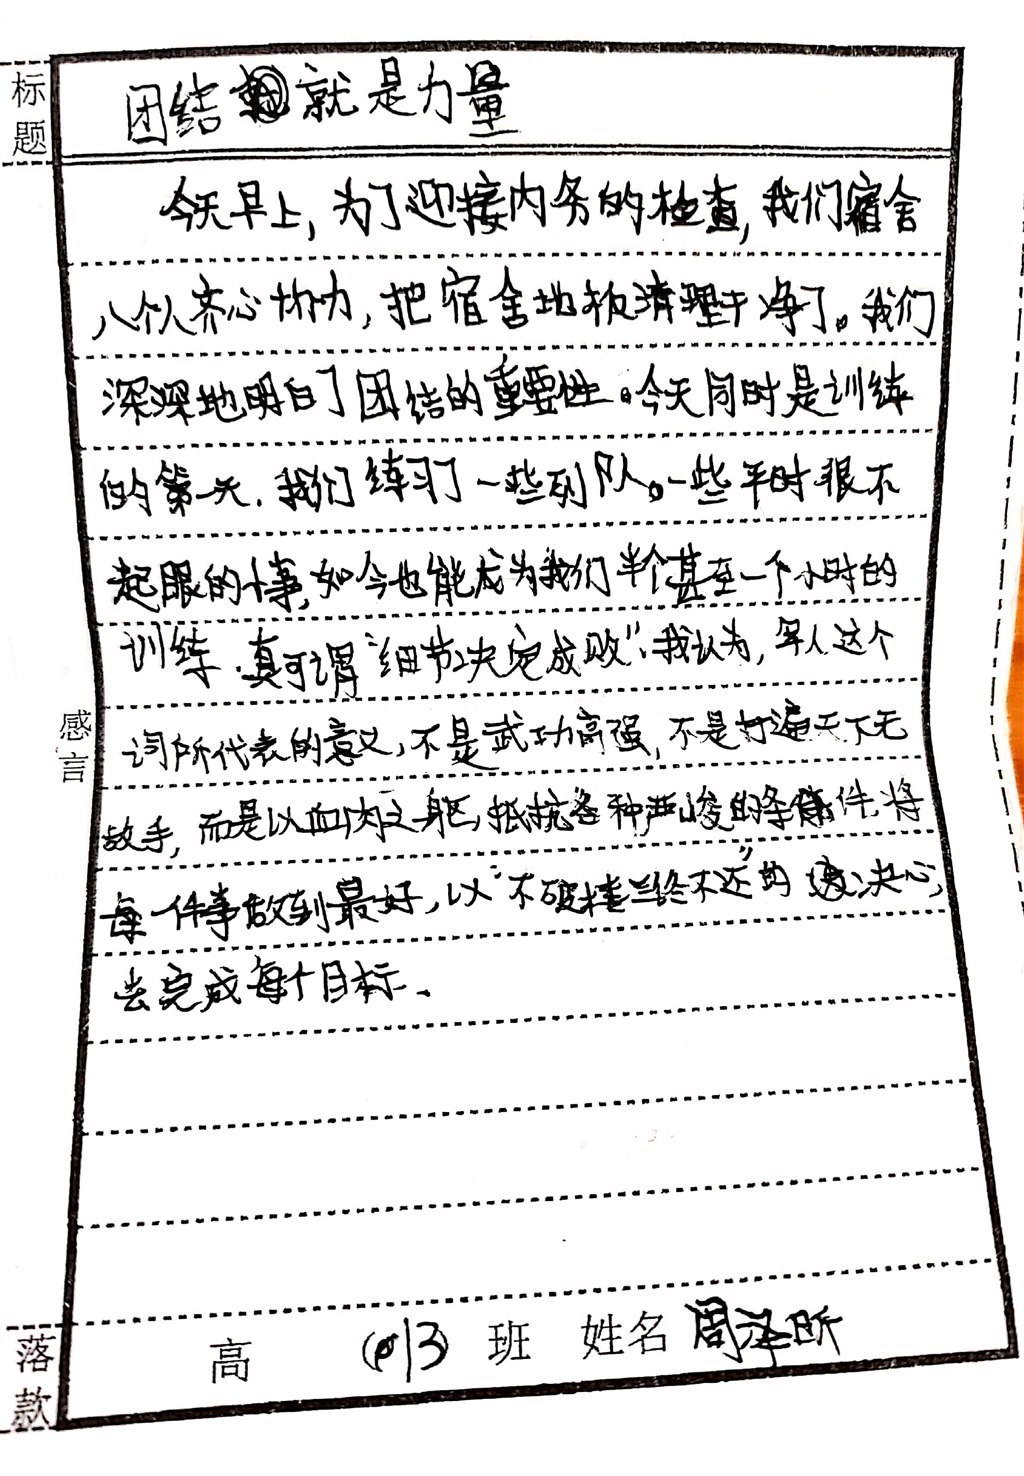 标题
团结就是力量
今天早上，为了迎接内务的检查，我们宿舍
八个人齐心协力，把宿舍地板清理干净了。我们
深深地明白了团结的重要性。今天同时是训练
的第一天，我们练习了一些列队。一些平时很不
起眼的小事，如今也能成为我们半个甚至一个小时的
训练。真可谓“细节决定成败”。我认为，军人这个
词所代表的意义，不是武功高强，不是打遍天下无
敌手，而是以血肉之躯，抵抗各种严峻的条件，将
每一件事做到最好，以“不破楼兰终不还”的决心，
去完成每个目标。
感言
落款
高 (13) 班 姓名 周泽昕